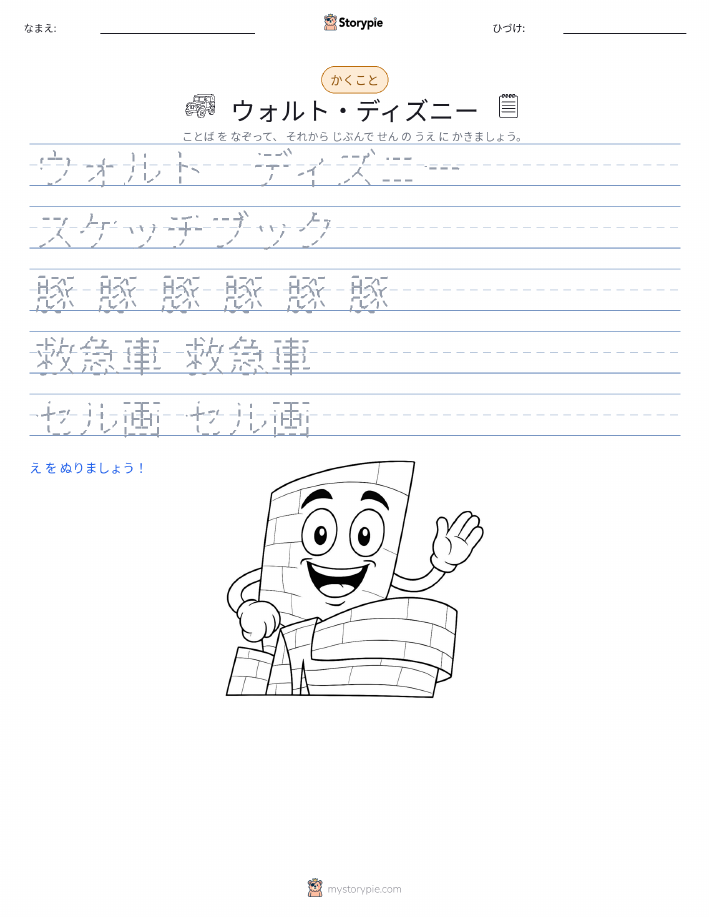 なまえ:
Storypie
ひづけ:
かくこと
ウォルト・ディズニー
ことば を なぞって、 それから じぶんで せん の うえ に かきましょう。
ウォルト ディズニー
スケッチブック
豚 豚 豚 豚 豚 豚
救急車 救急車
セル画 セル画
え を ぬりましょう！
mystorypie.com